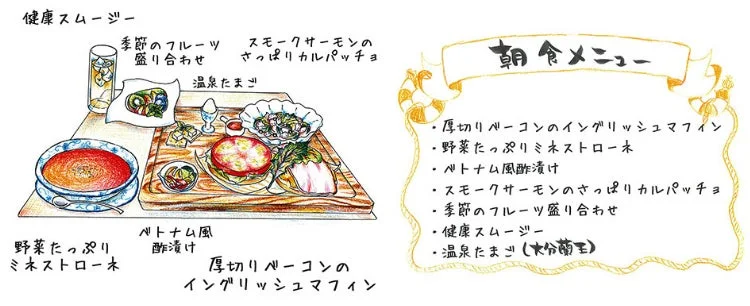 健康スムージー
季節のフルーツ
盛り合わせ
スモークサーモンの
さっぱりカルパッチョ
温泉たまご
野菜たっぷり
ミネストローネ
ベトナム風
酢漬け
厚切りベーコンの
イングリッシュマフィン
朝食メニュー
・厚切りベーコンのイングリッシュマフィン
・野菜たっぷりミネストローネ
・ベトナム風酢漬け
・スモークサーモンのさっぱりカルパッチョ
・季節のフルーツ盛り合わせ
・健康スムージー
・温泉たまご(大分蘭王)